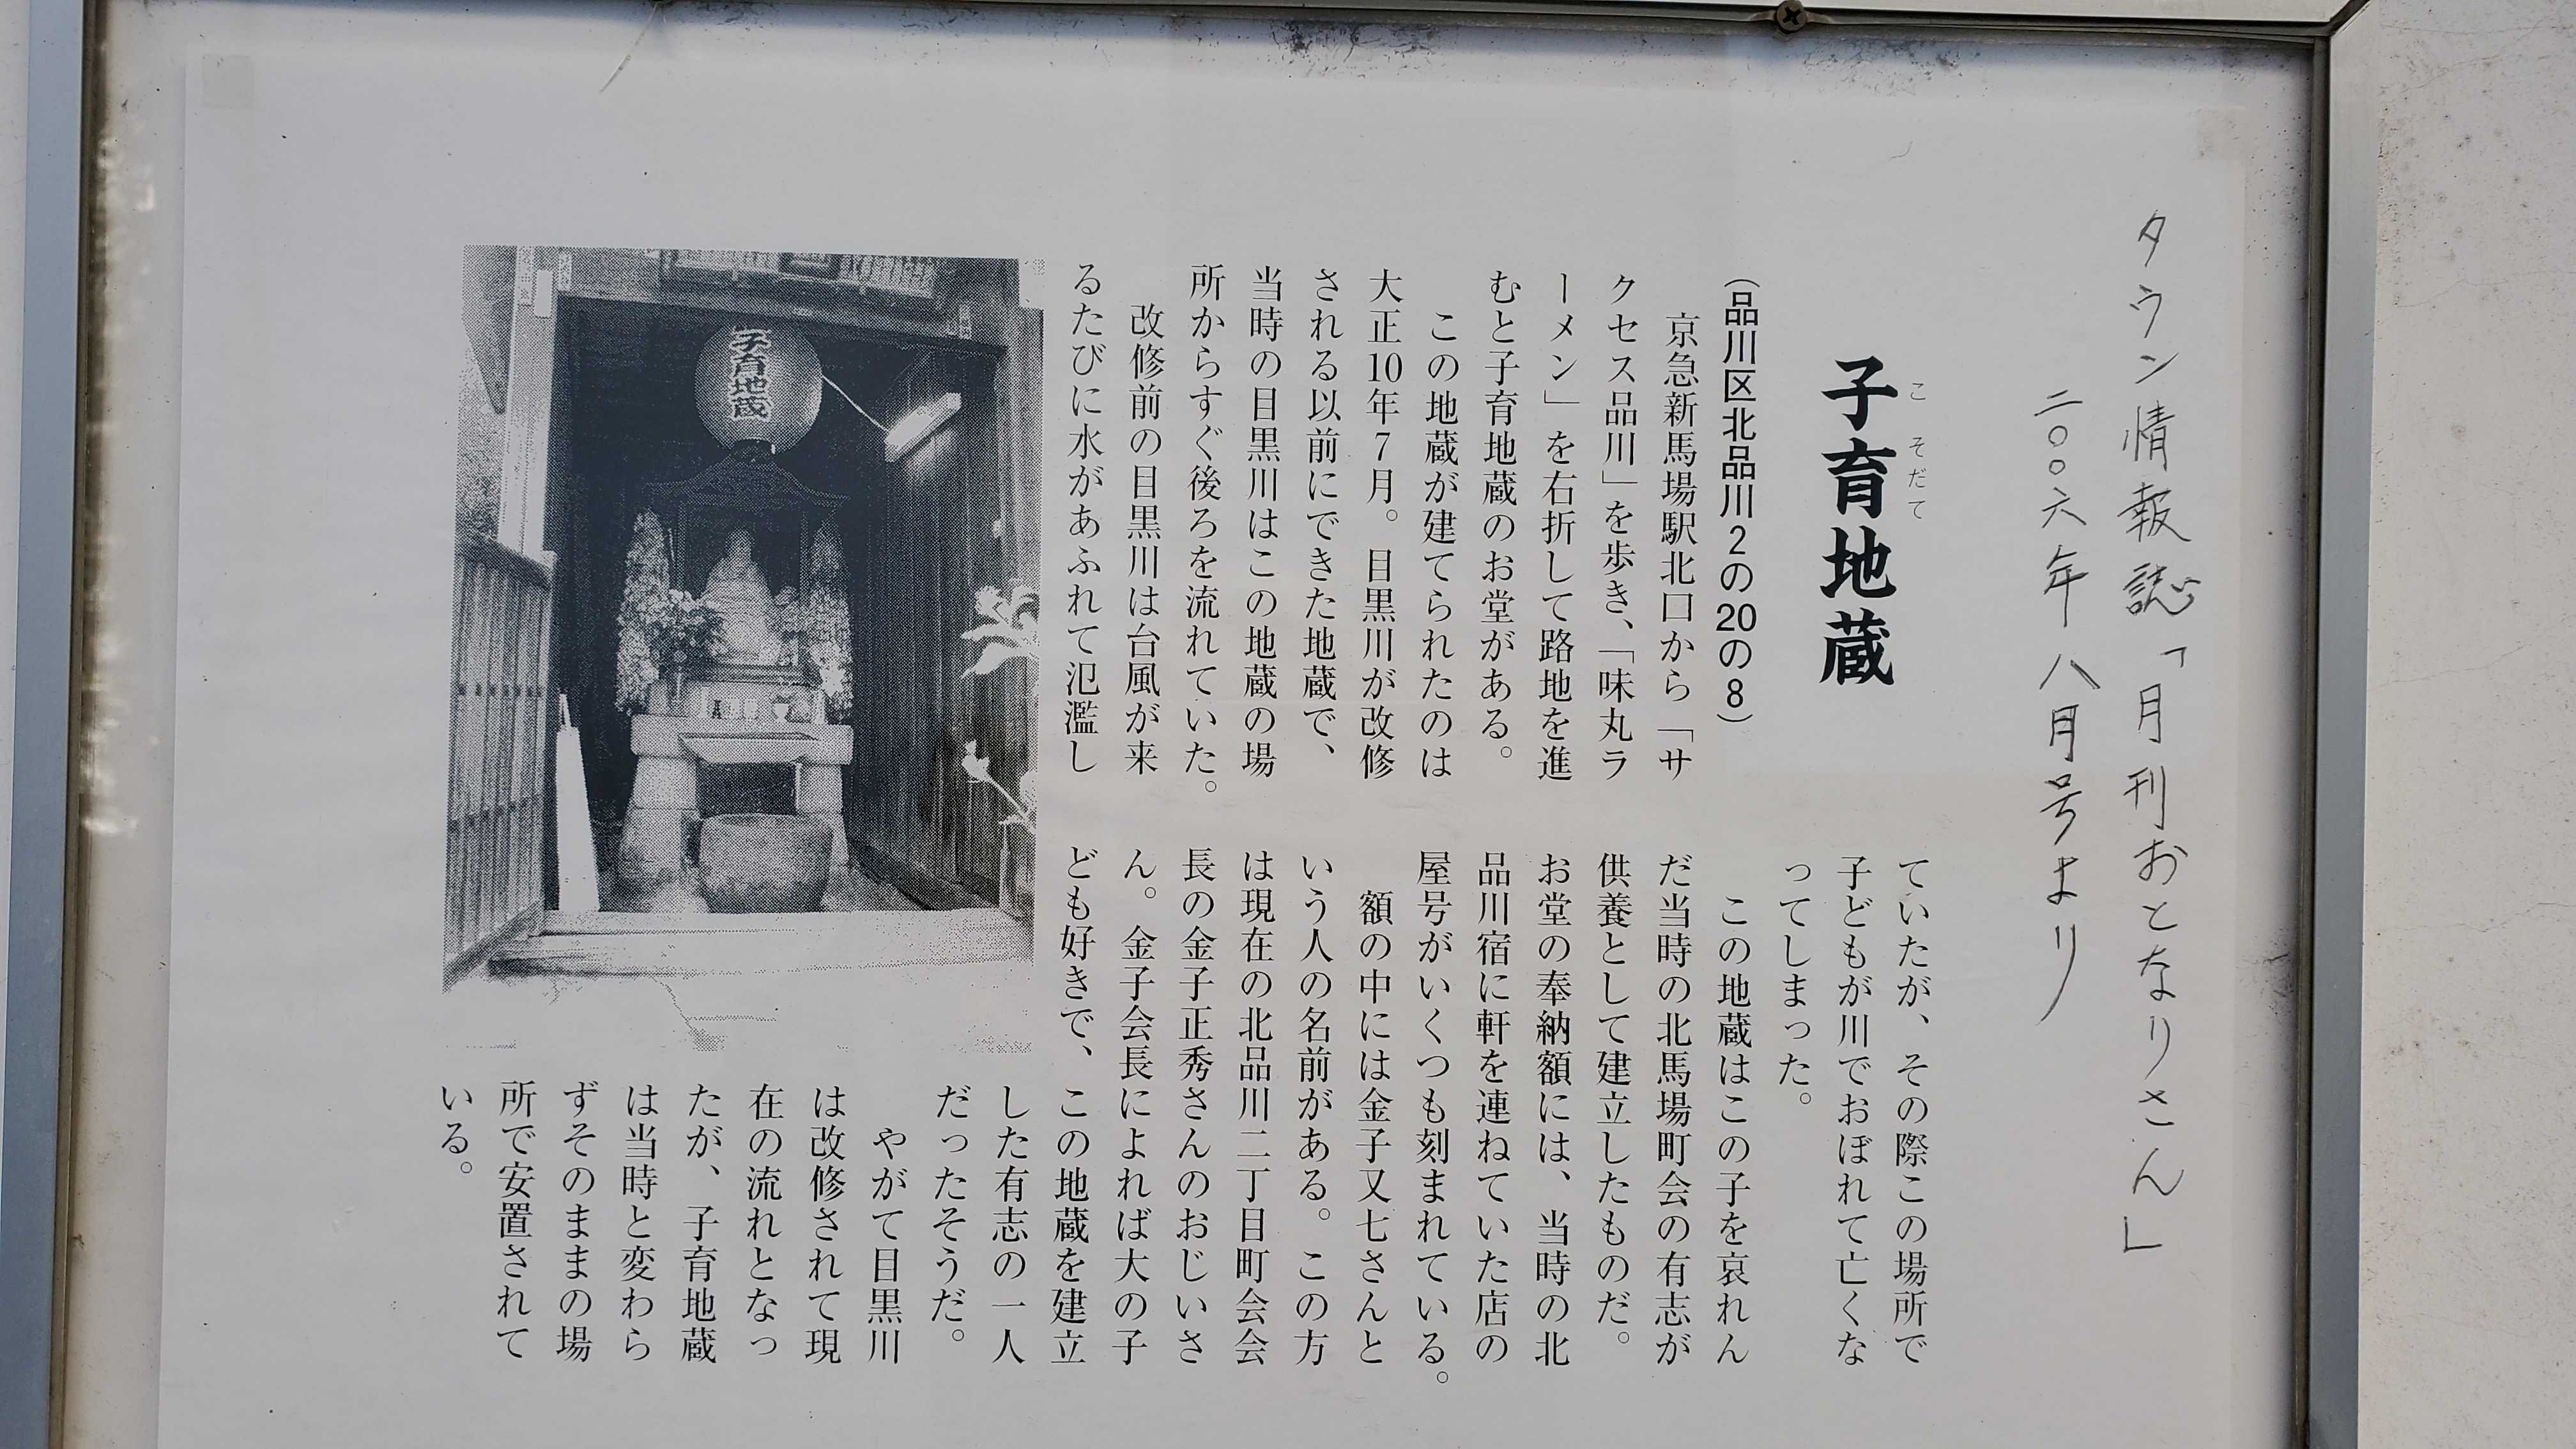 タウン情報誌「月刊おとなりさん」
二〇〇六年八月号より
こ そだて
子育地蔵
（品川区北品川2の20の8）
京急新馬場駅北口から「サ
クセス品川」を歩き、「味丸ラ
ーメン」を右折して路地を進
むと子育地蔵のお堂がある。
この地蔵が建てられたのは
大正10年7月。目黒川が改修
される以前にできた地蔵で、
当時の目黒川はこの地蔵の場
所からすぐ後ろを流れていた。
改修前の目黒川は台風が来
るたびに水があふれて氾濫し
ていたが、その際この場所で
子どもが川でおぼれて亡くな
ってしまった。
この地蔵はこの子を哀れん
だ当時の北馬場町会の有志が
供養として建立したものだ。
お堂の奉納額には、当時の北
品川宿に軒を連ねていた店の
屋号がいくつも刻まれている。
額の中には金子又七さんと
いう人の名前がある。この方
は現在の北品川二丁目町会会
長の金子正秀さんのおじいさ
ん。金子会長によれば大の子
ども好きで、この地蔵を建立
した有志の一人
だったそうだ。
やがて目黒川
は改修されて現
在の流れとなっ
たが、子育地蔵
は当時と変わら
ずそのままの場
所で安置されて
いる。
子育地蔵